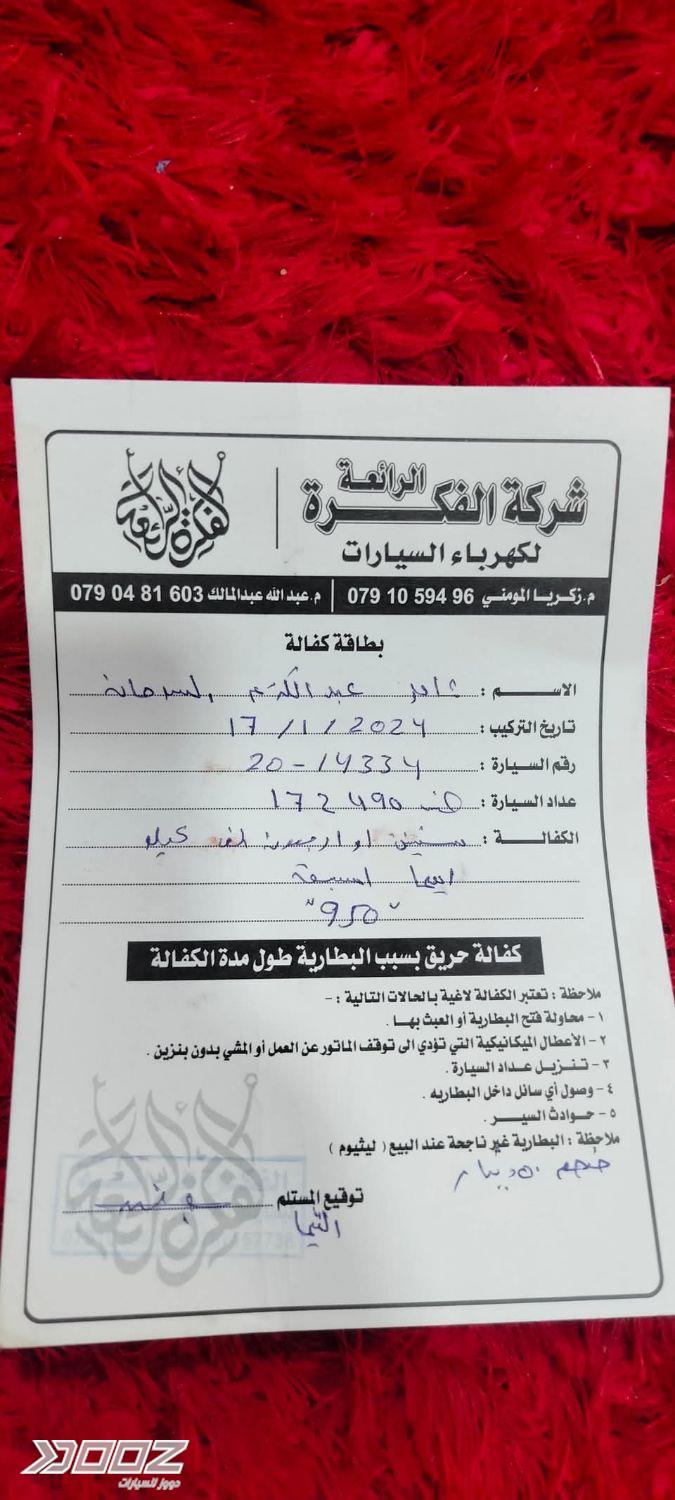 الفكرة الرائعة
شركة الفكرة الرائعة
لكهرباء السيارات
م.زكريا المومني 96 594 10 079
م.عبدالله عبدالمالك 603 81 04 079
بطاقة كفالة
الاسم : عبدالكريم
تاريخ التركيب : 17/1/2024
رقم السيارة : 20-14334
عداد السيارة : 172490
الكفالة : سنتين او اربعون الف كيلو
ايهما اسبق
"950"
كفالة حريق بسبب البطارية طول مدة الكفالة
ملاحظة : تعتبر الكفالة لاغية بالحالات التالية : -
١- محاولة فتح البطارية أو العبث بها .
٢- الأعطال الميكانيكية التي تؤدي الى توقف الماتور عن العمل أو المشي بدون بنزين .
٣- تنزيل عداد السيارة .
٤- وصول أي سائل داخل البطاريه .
٥- حوادث السير .
ملاحظة : البطارية غير ناجحة عند البيع ( ليثيوم )
دينار
توقيع المستلم
DOOZ
دووز للسيارات